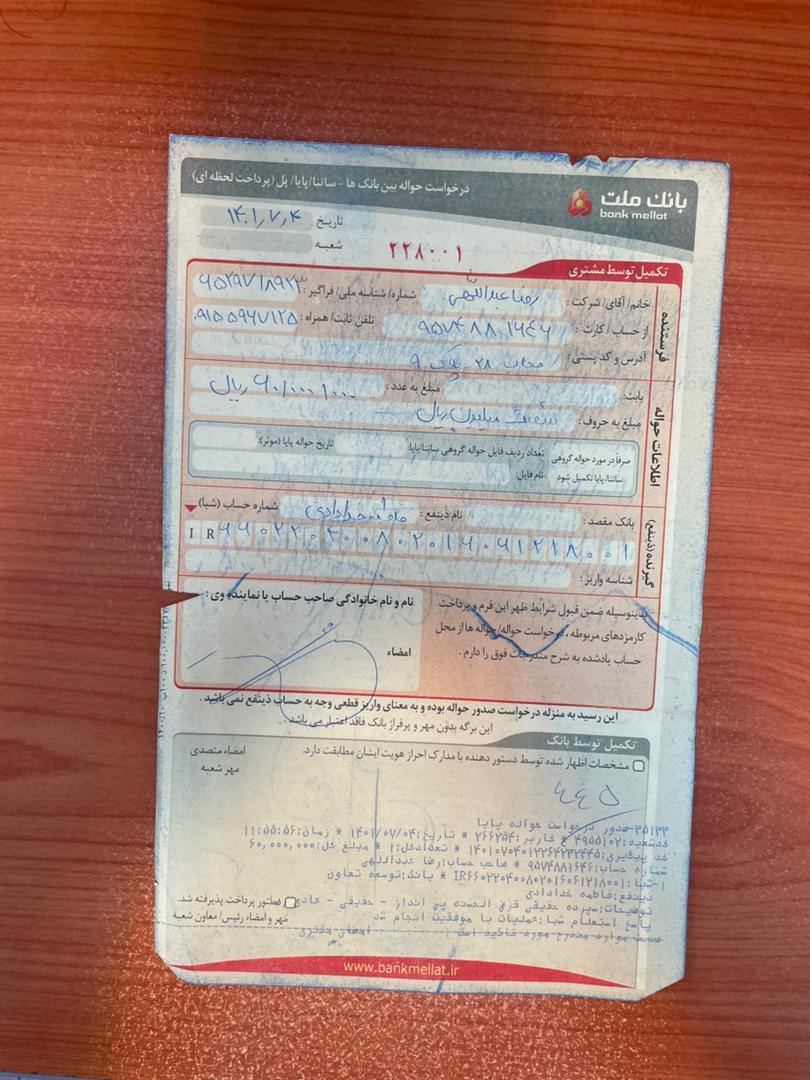 بانک ملت
bank mellat
درخواست حواله بین بانک ها - ساتنا/پایا/ پل (پرداخت لحظه ای)
تاریخ ۱۴۰۱/۷/۴
شعبه
۲۲۸۰۰۱
تکمیل توسط مشتری
فرستنده
خانم/آقای/ شرکت: رضا عبداللهی شماره/ شناسه ملی/ فراگیر:
از حساب / کارت: ۹۵۷۴۸۸۱۶۴۶ تلفن ثابت/ همراه: ۰۹۱۵۵۹۶۷۱۲۵
آدرس و کد پستی: ۲۸ پلاک ۹
اطلاعات حواله
بابت: مبلغ به عدد: ۶۰/۰۰۰/۰۰۰ ریال
مبلغ به حروف: شصت میلیون ریال
صرفاً در مورد حواله گروهی ساتنا/پایا تکمیل شود
تعداد ردیف فایل حواله گروهی ساتنا/پایا: تاریخ حواله پایا (موثر):
نام فایل:
گیرنده (ذینفع)
بانک مقصد: نام ذینفع: فاطمه خدادادی شماره حساب (شبا)
IR ۶۶۰۲۲۰۴۰۰۸۰۲۰۱۶۰۶۱۲۱۸۰۰۱
شناسه واریز:
بدینوسیله ضمن قبول شرایط ظهر این فرم و پرداخت
کارمزدهای مربوطه، درخواست حواله/حواله ها از محل
حساب یادشده به شرح مندرجات فوق را دارم.
نام و نام خانوادگی صاحب حساب یا نماینده وی:
امضاء
این رسید به منزله درخواست صدور حواله بوده و به معنای واریز قطعی وجه به حساب ذینفع نمی باشد.
این برگه بدون مهر و پرفراژ بانک فاقد اعتبار می باشد.
تکمیل توسط بانک
مشخصات اظهار شده توسط دستور دهنده با مدارک احراز هویت ایشان مطابقت دارد.
امضاء متصدی
مهر شعبه
۴۴۵
۳۵۱۳۳-صدور درخواست حواله پایا
کدشعبه:۴۹۵۵۱۰۲ * کاربر:۲۶۶۲۵۴ * تاریخ:۱۴۰۱/۰۷/۰۴ * زمان:۱۱:۵۵:۵۶
کد پیگیری:۱۴۰۱۰۷۰۴۰۱۲۲۶۴۲۳۲۴۴۵ * تعدادکل:۱ * مبلغ کل:۶۰,۰۰۰,۰۰۰
شماره حساب:۹۵۷۴۸۸۱۶۴۶ * صاحب حساب:رضا عبداللهی
۱-شبا:IR۶۶۰۲۲۰۴۰۰۸۰۲۰۱۶۰۶۱۲۱۸۰۰۱ * بانک:توسعه تعاون
ذینفع:فاطمه خدادادی
توضیحات:سپرده حقیقی قرض الحسنه پس انداز - حقیقی - عادی
پاسخ استعلام شبا:عملیات با موفقیت انجام شد
دستور پرداخت پذیرفته شد.
مهر و امضاء رئیس/ معاون شعبه
www.bankmellat.ir